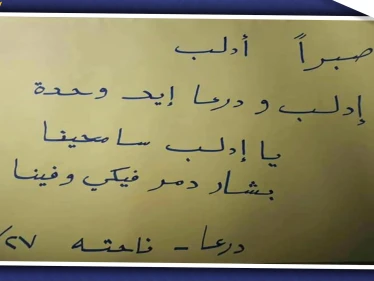 صبراً أدلب
إدلب و درعا إيد وحدة
يا إدلب سامحينا
بشار دمر فيكي وفينا
درعا - ناحته ٢٧/